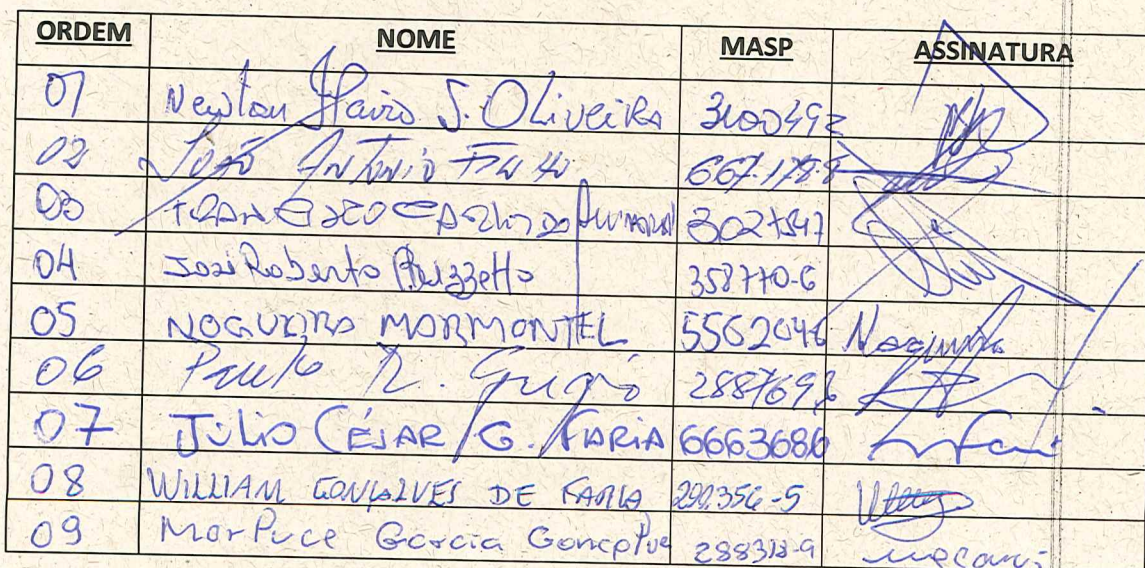 ORDEM NOME MASP ASSINATURA
01 Newton Flavio S. OLiveiRa 3100492
02 João Antonio 667.178-8
03 FRANCISCO CARLOS DO AMARAL 3027547
04 José Roberto Bruzzetto 358770-6
05 NOGUEIRA MARMONTEL 5562046 Nogueira
06 Paulo R. 2887696
07 JÚLIO CÉSAR G. FARIA 6663686
08 WILLIAM GONÇALVES DE FARIA 290.356-5
09 Garcia Gonçalves 288313-9